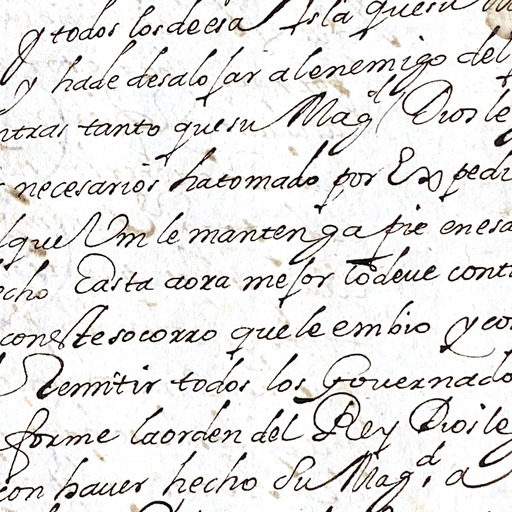 y todos los de esa Isla que su
y ha de desalojar al enemigo del
ntras tanto que su Magd Dios le
necesarios ha tomado por Expedi
lque Vm le mantenga a pie en esa
echo hasta aora mejor lo deue conti
con este socorro que le embio y con
Remitir todos los Governado
forme la orden del Rey Dios le g
con hauer hecho Su Magd a